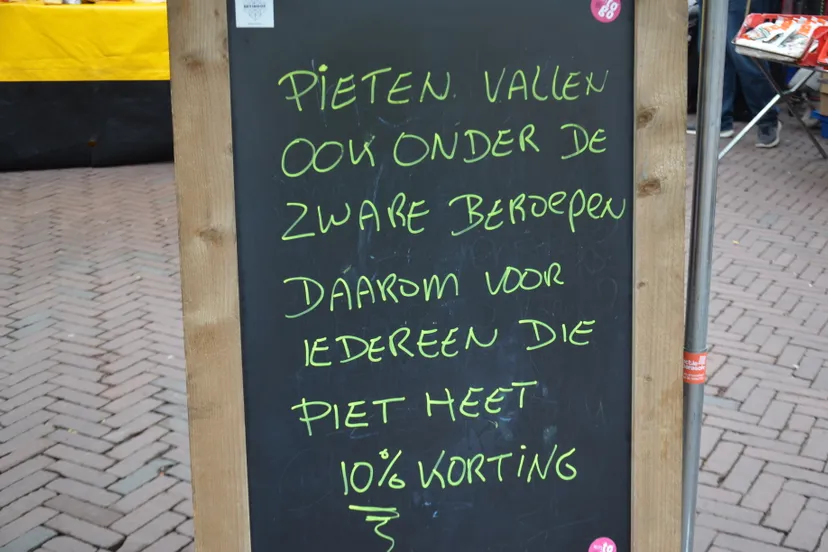 PIETEN VALLEN
OOK ONDER DE
ZWARE BEROEPEN
DAAROM VOOR
IEDEREEN DIE
PIET HEET
10% KORTING